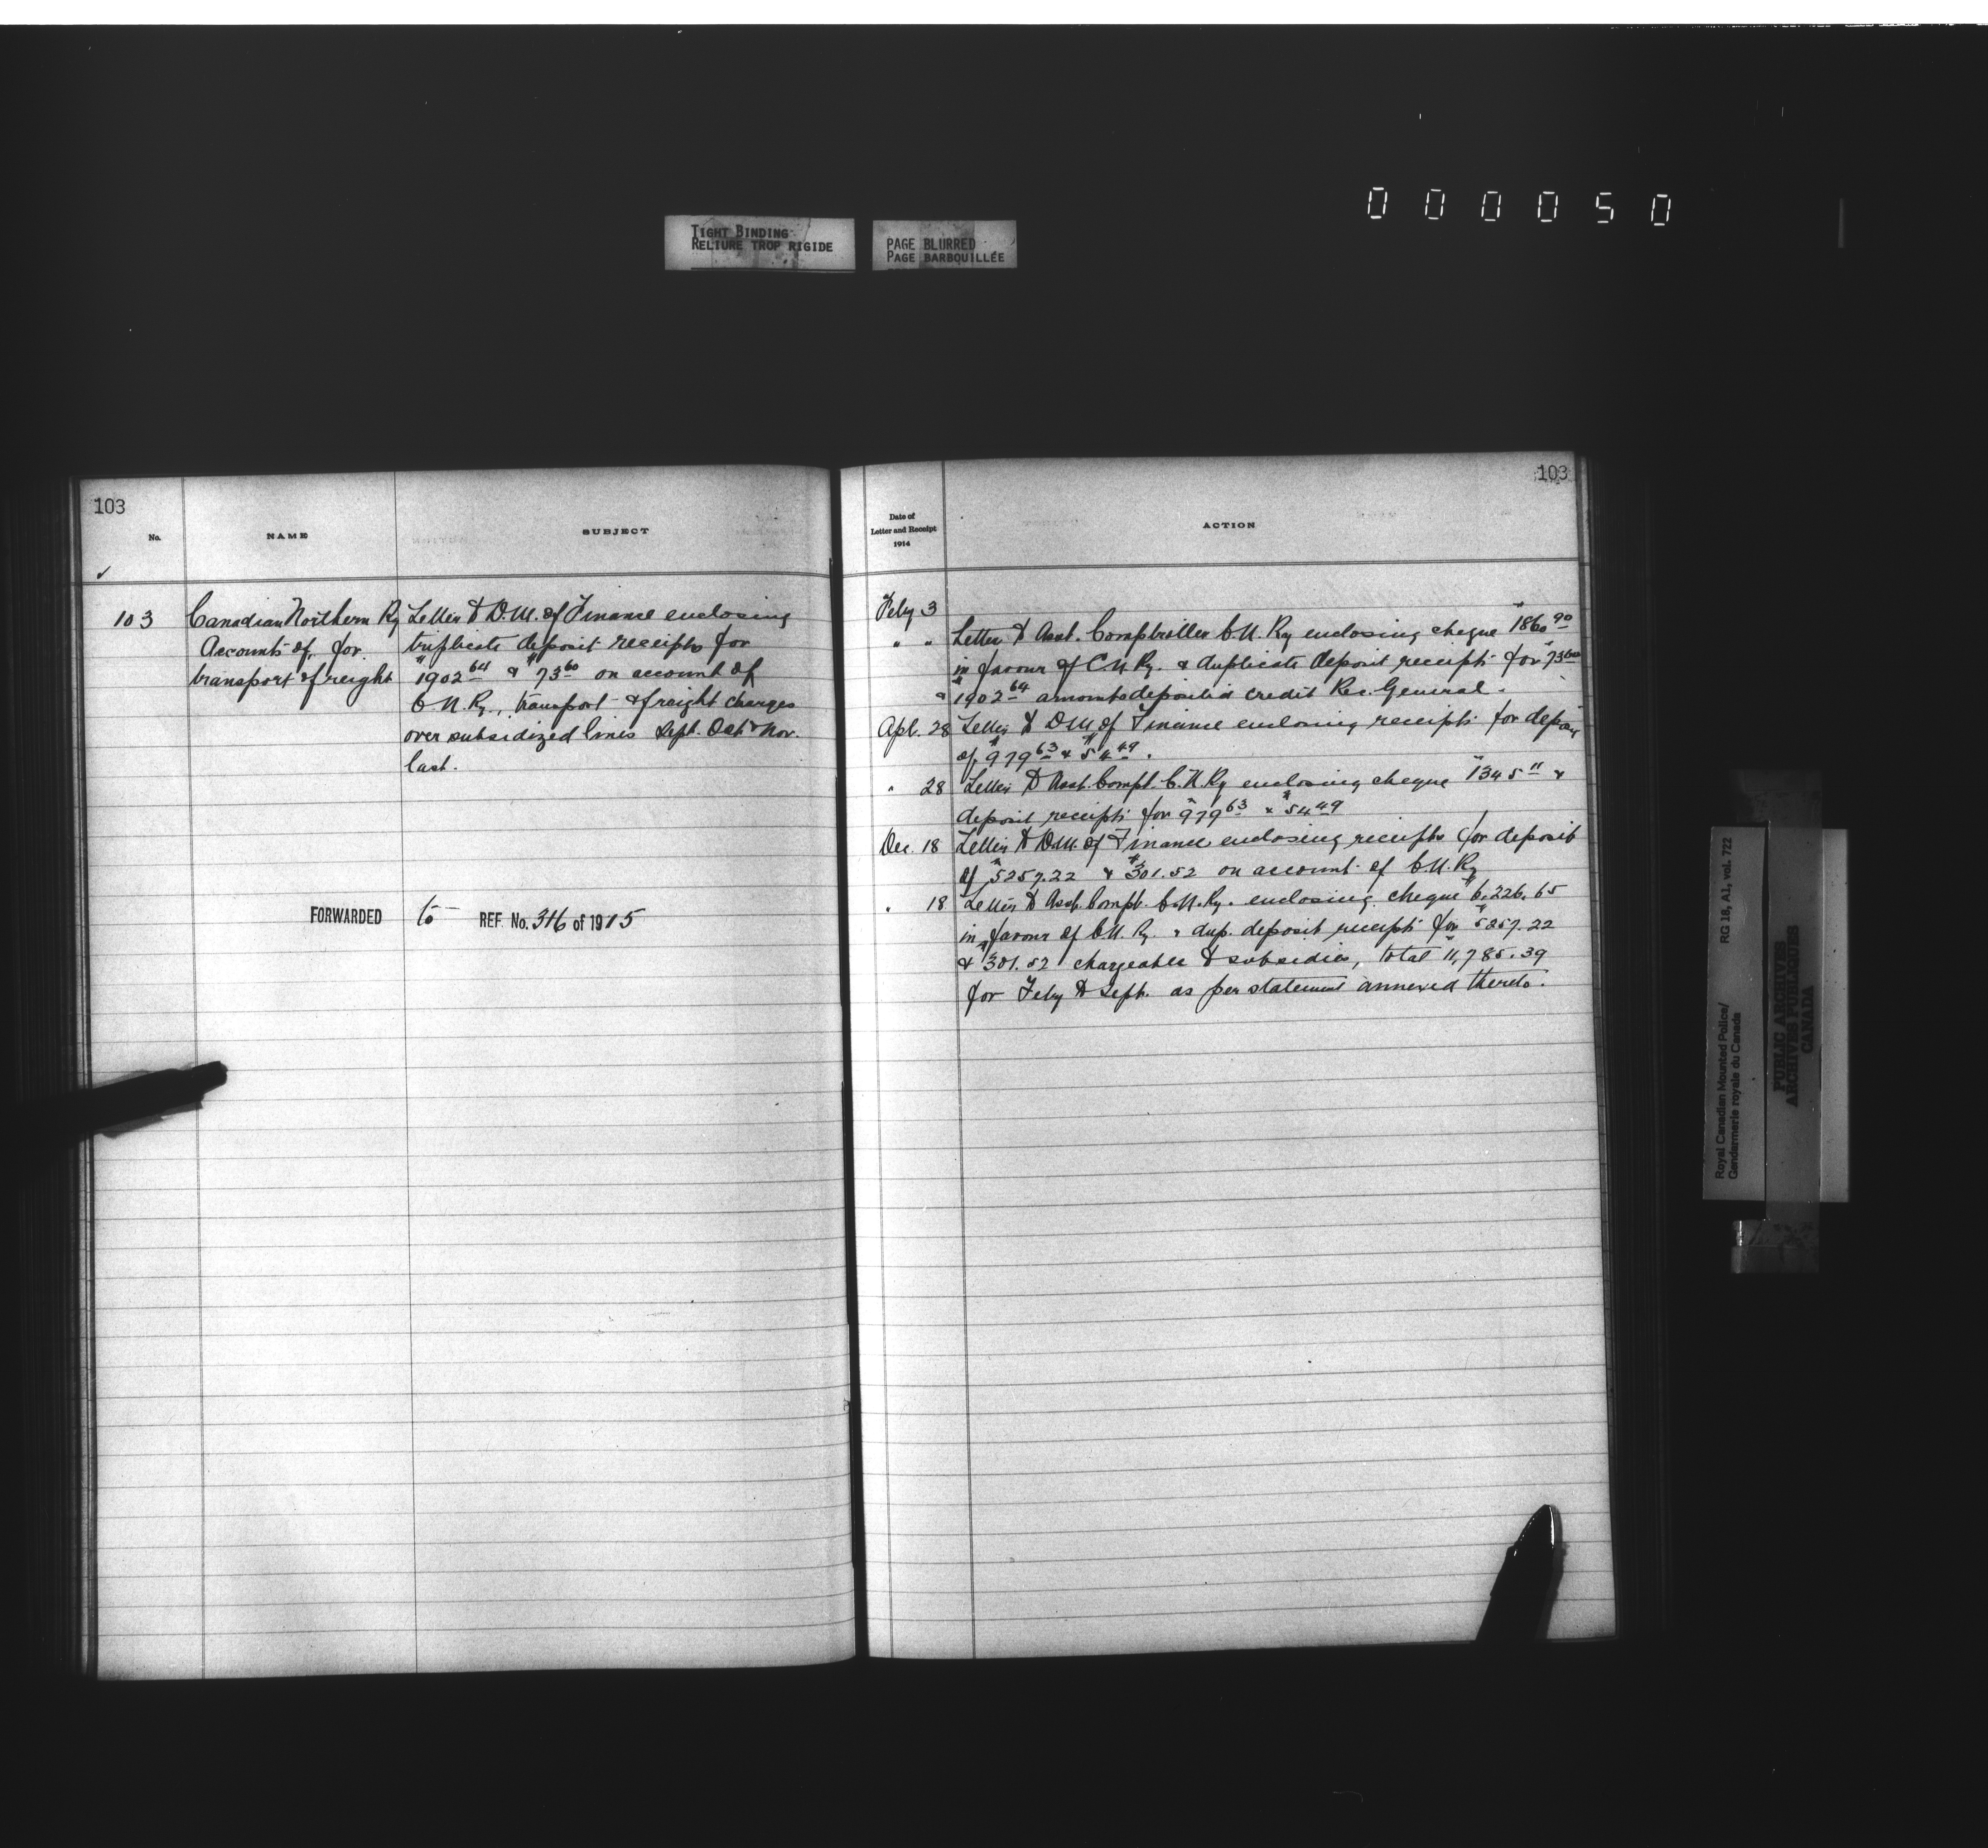 000050
TIGHT BINDING
RELIURE TROP RIGIDE
PAGE BLURRED
PAGE BARBOUILLÉE
103
No.
NAME
SUBJECT
103
Canadian Northern Ry
Accounts of, for
transport & freight
Letter to D.M. of Finance enclosing
triplicate deposit receipts for
$1902 64 & $73 60 on account of
C.N. Ry., transport & freight charges
over subsidized lines Sept. Oct & Nov.
last.
FORWARDED to REF. No. 316 of 1915
103
Date of
Letter and Receipt
1914
ACTION
Feby 3
" " Letter to Asst. Comptroller C.N. Ry enclosing cheque $1860 90
in favour of C.N. Ry. & duplicate deposit receipts for $73 60
& $1902 64 amounts deposited credit Rec. General.
Apl. 28 Letter to D.M. of Finance enclosing receipts for deposit
of $979 63 & $54 49.
" 28 Letter to Asst. Compt. C.N. Ry enclosing cheque $1345 11 &
deposit receipts for $979 63 & $54 49
Dec. 18 Letter to D.M. of Finance enclosing receipts for deposit
of $5257.22 & $301.52 on account of C.N. Ry
" 18 Letter to Asst. Compt. C.N. Ry. enclosing cheque $6,226.65
in favour of C.N. Ry. & dup. deposit receipts for $5257.22
& $301.52 chargeable to subsidies, total $11,785.39
for Feby to Sept. as per statement annexed thereto.
Royal Canadian Mounted Police/
Gendarmerie royale du Canada
RG 18, A1, vol. 722
PUBLIC ARCHIVES
ARCHIVES PUBLIQUES
CANADA